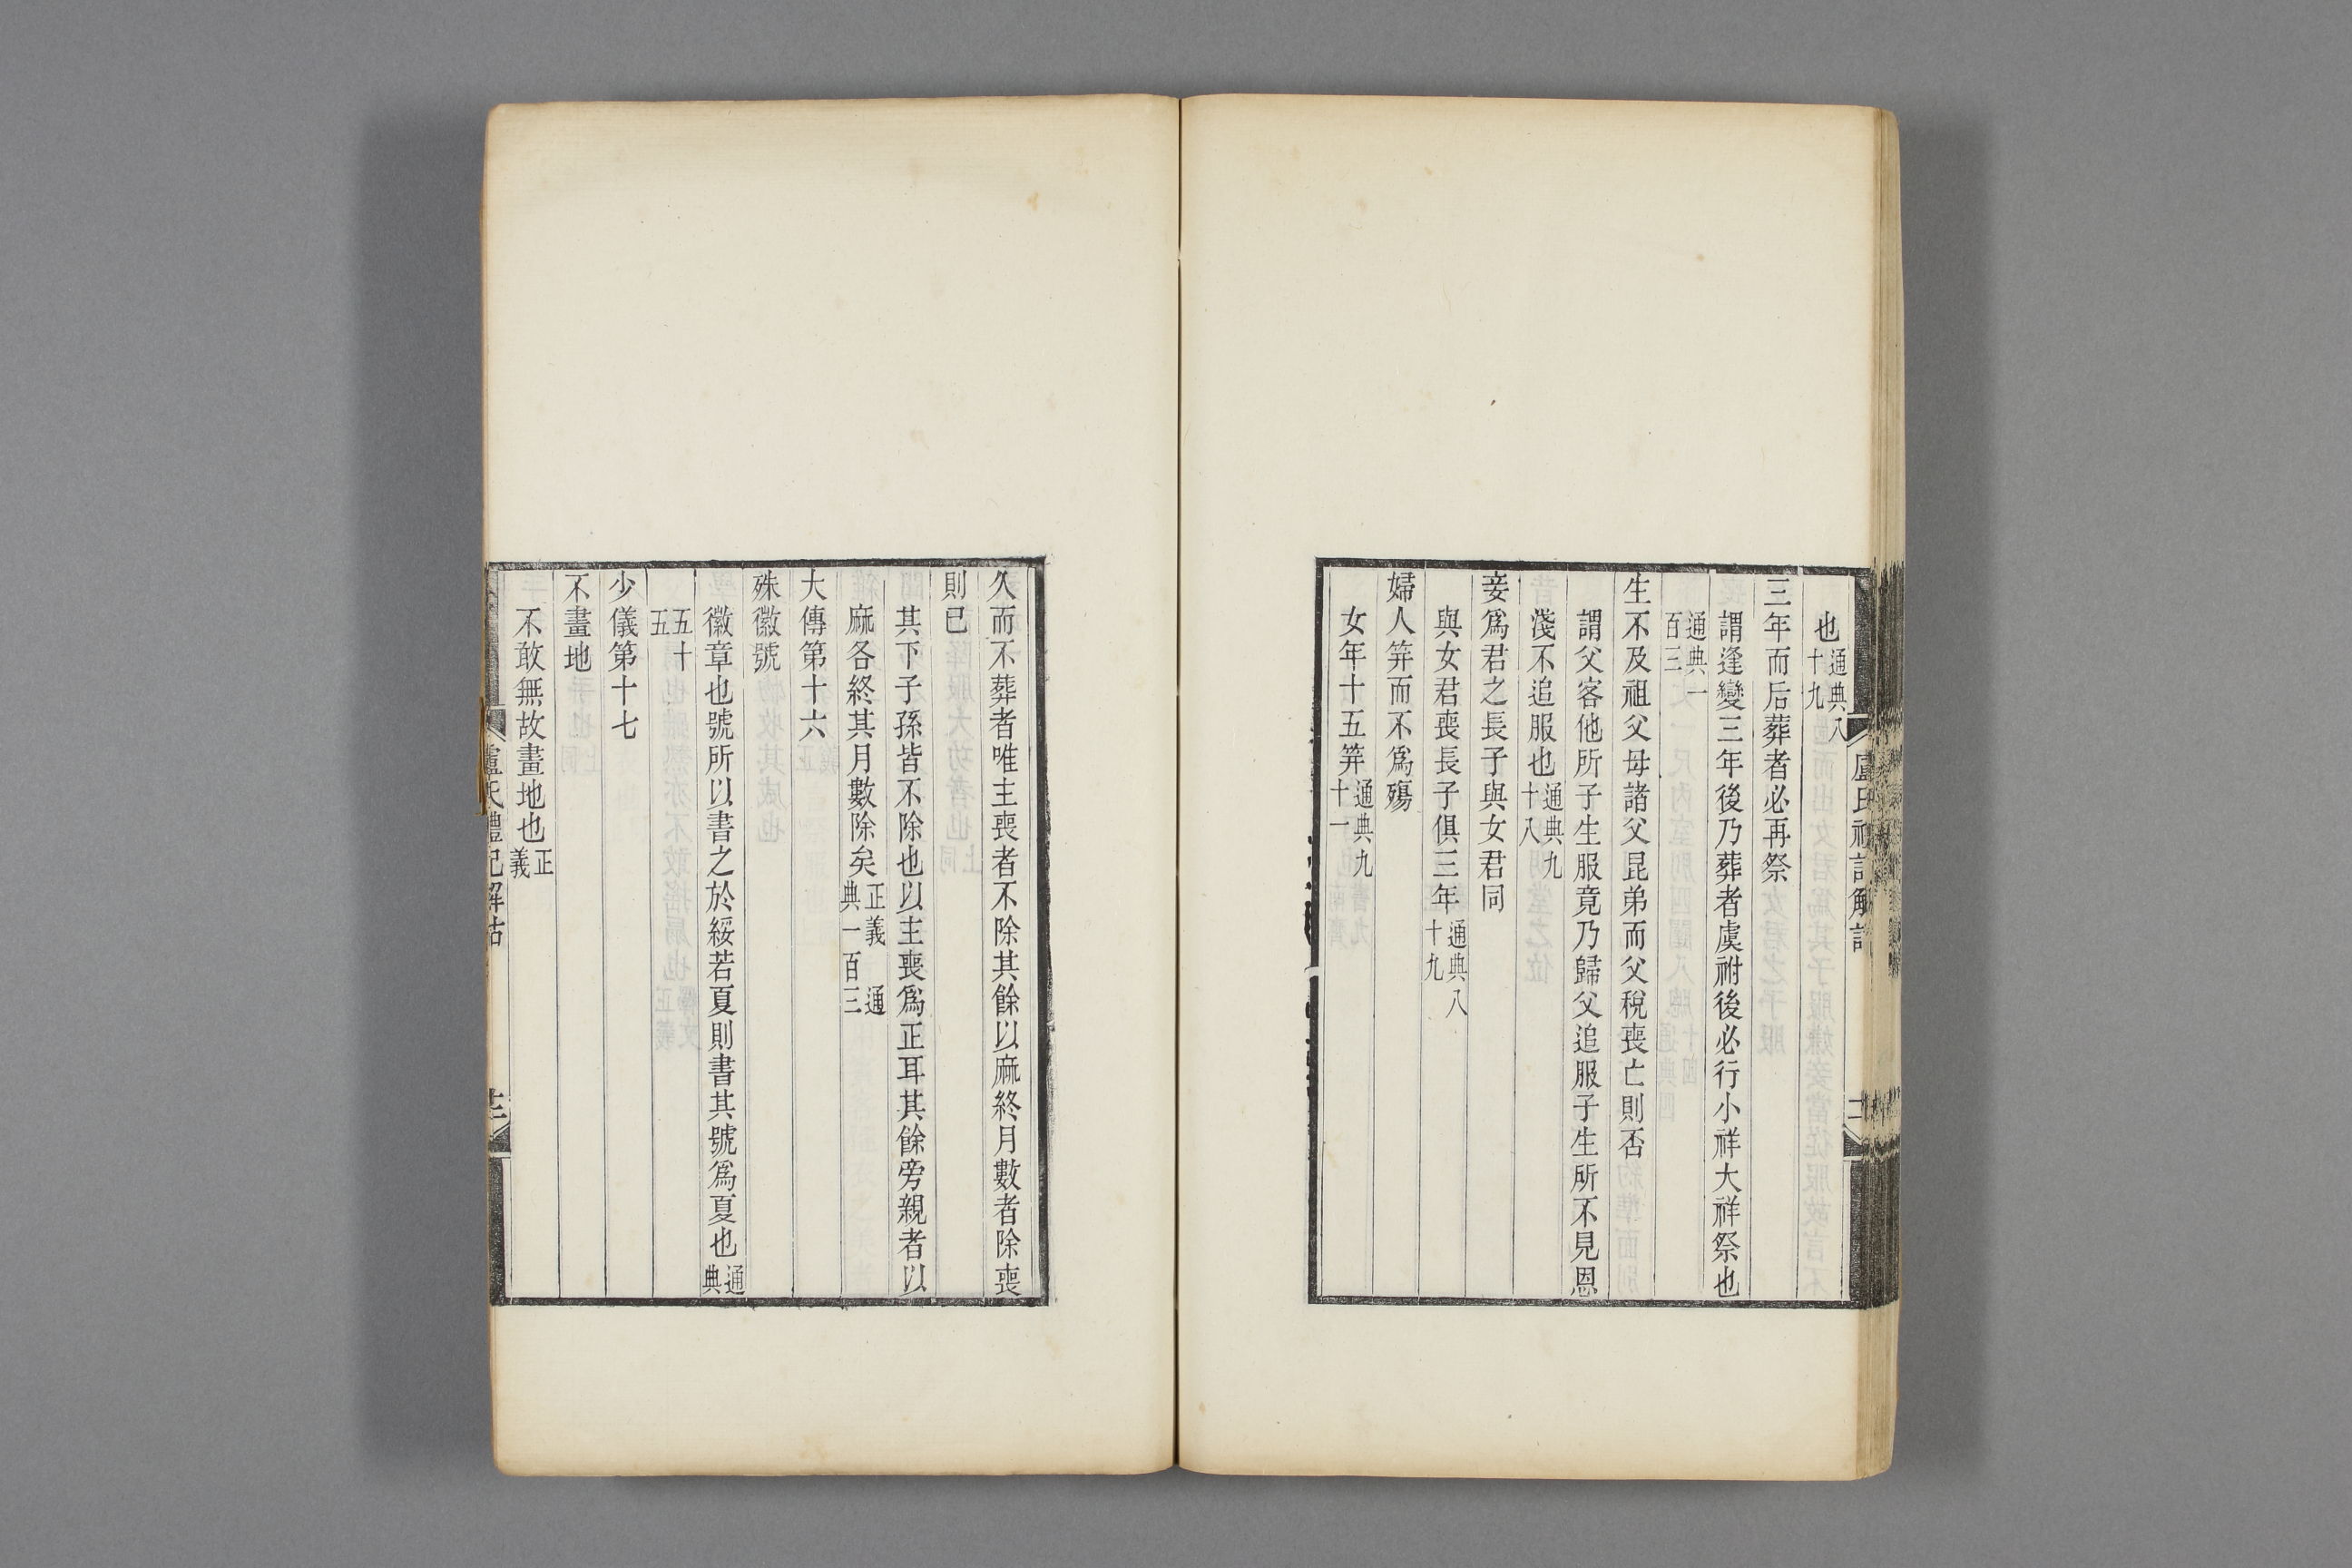 盧氏禮記解詁
也通典八十九
三年而后葬者必再祭
謂逢變三年後乃葬者虞祔後必行小祥大祥祭也
通典一百三
生不及祖父母諸父昆弟而父稅喪亡則否
謂父客他所子生服竟乃歸父追服子生所不見恩
淺不追服也通典九十八
妾爲君之長子與女君同
與女君喪長子俱三年通典八十九
婦人笄而不爲殤
女年十五笄通典九十一
久而不葬者唯主喪者不除其餘以麻終月數者除喪
則已
其下子孫皆不除也以主喪爲正耳其餘旁親者以
麻各終其月數除矣正義 通典一百三
大傳第十六
殊徽號
徽章也號所以書之於綏若夏則書其號爲夏也通典
五十五
少儀第十七
不畫地
不敢無故畫地也正義
盧氏禮記解詁